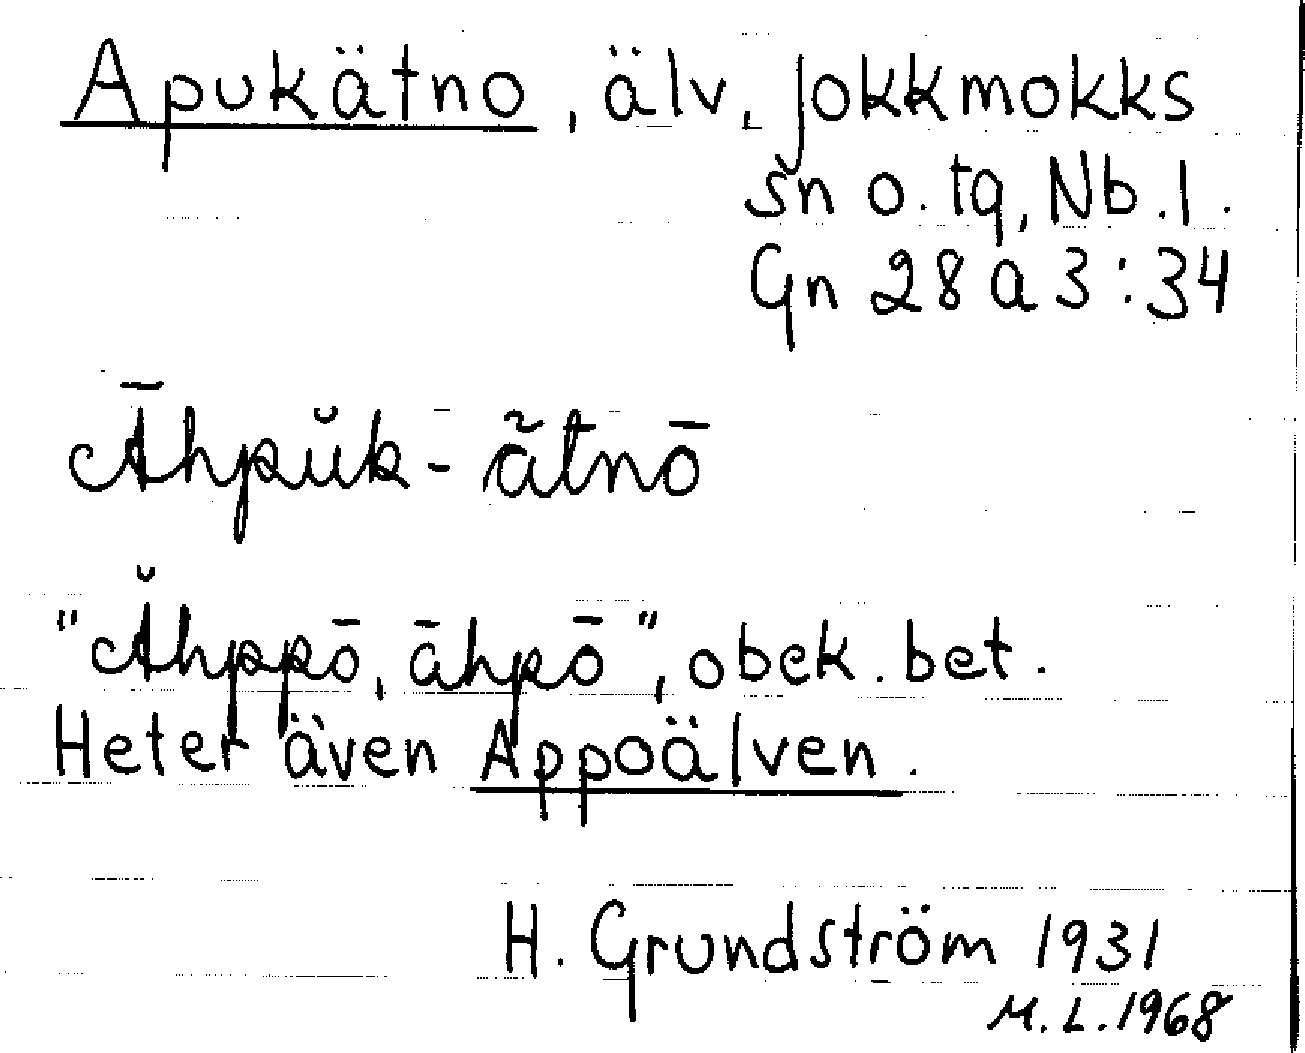 Apukätno, älv, Jokkmokks
sn o. tg, Nb. l.
Gn 28 a 3:34
Āhpŭk-ā̃tnō
"Ăhppō, āhpō", obek. bet.
Heter även Appoälven.
H. Grundström 1931
M.L. 1968